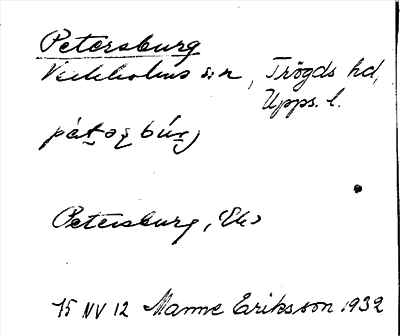 Petersburg
Veckholms sn, Trögds hd,
Upps. l.
Petersburg, Ek
15 NV 12 Manne Eriksson 1932